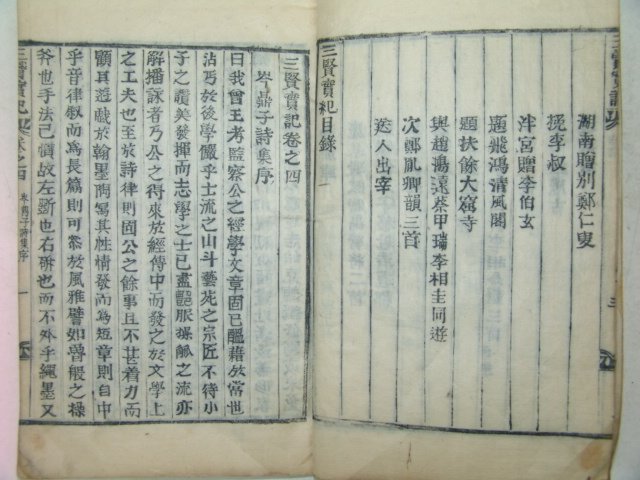 湖南贈別鄭仁叟
挽李叔
泮宮贈李伯玄
題飛鴻清風閣
題扶餘大寬寺
與趙鴻遠蔡甲瑞李相圭同遊
次鄭胤卿韻三首
送人出宰
三賢實紀目錄
三賢實記卷之四
岑鼎子詩集序
曰我曾王考監察公之經學文章固已醞藉於當世
沾丐於後學儼乎士流之山斗藝苑之宗匠不待小
子之讚美發揮而志學之士已盡
之流亦
解播詠者乃公之得來於經傳中而發之於文學上
之工夫也至於詩律則固公之餘事且不甚着力而
顧其遊戲於翰墨之間寫其性情發而為短章則自中
乎音律叙而為長篇則可然於風雅譬如魯般之操
斧也手法已慣故左斲也右斫也而不外乎繩墨又
三賢實記
卷之四
詩集序
一